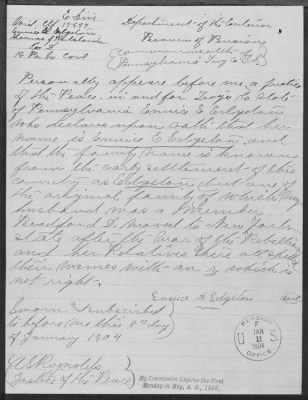 E Div
Department of the Interior
Bureau of Pensions
Commonwealth of
Pennsylvania Tioga Co SS
Co D
Pa Cav
Personally appears before me a Justice
of the Peace in and for Tioga Co State
of Pennsylvania Eunice E Edgeton
who declares upon oath that her
name is Eunice E Edgeton and
that the family name is known
from the early settlement of this
Country as Edgeton but one of
the original family of which my
husband was a member
Bradford D, moved to New York
State after the War of the Rebellion
and her Relatives there all spell
their names with an r which is
not right.
Eunice Edgeton
seal
Sworn & subscribed
to before me this 8 day
of January 1904
A E Reynolds
Justice of the Peace
My Commission Expires the First
Monday in May, A. D., 1906.
PENSION
U S
JAN
11
1904
OFFICE